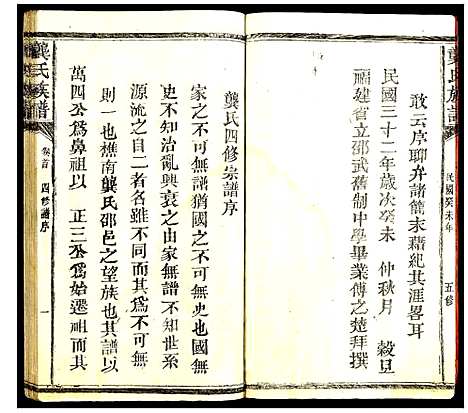 龔氏族譜
民國癸未年
五修
敢云序聊弁諸簡末藉紀其涯畧耳
民國三十二年歲次癸未 仲秋月 穀旦
福建省立邵武舊制中學畢業傅之楚拜撰
龔氏四修宗譜序
家之不可無譜猶國之不可無史也國無
史不知治亂興衰之由家無譜不知世系
源流之自二者名雖不同而其爲不可無
則一也樵南龔氏邵邑之望族也其譜以
萬四公爲鼻祖以 正三公爲始遷祖而其
龔氏族譜
卷首
四修譜序
一